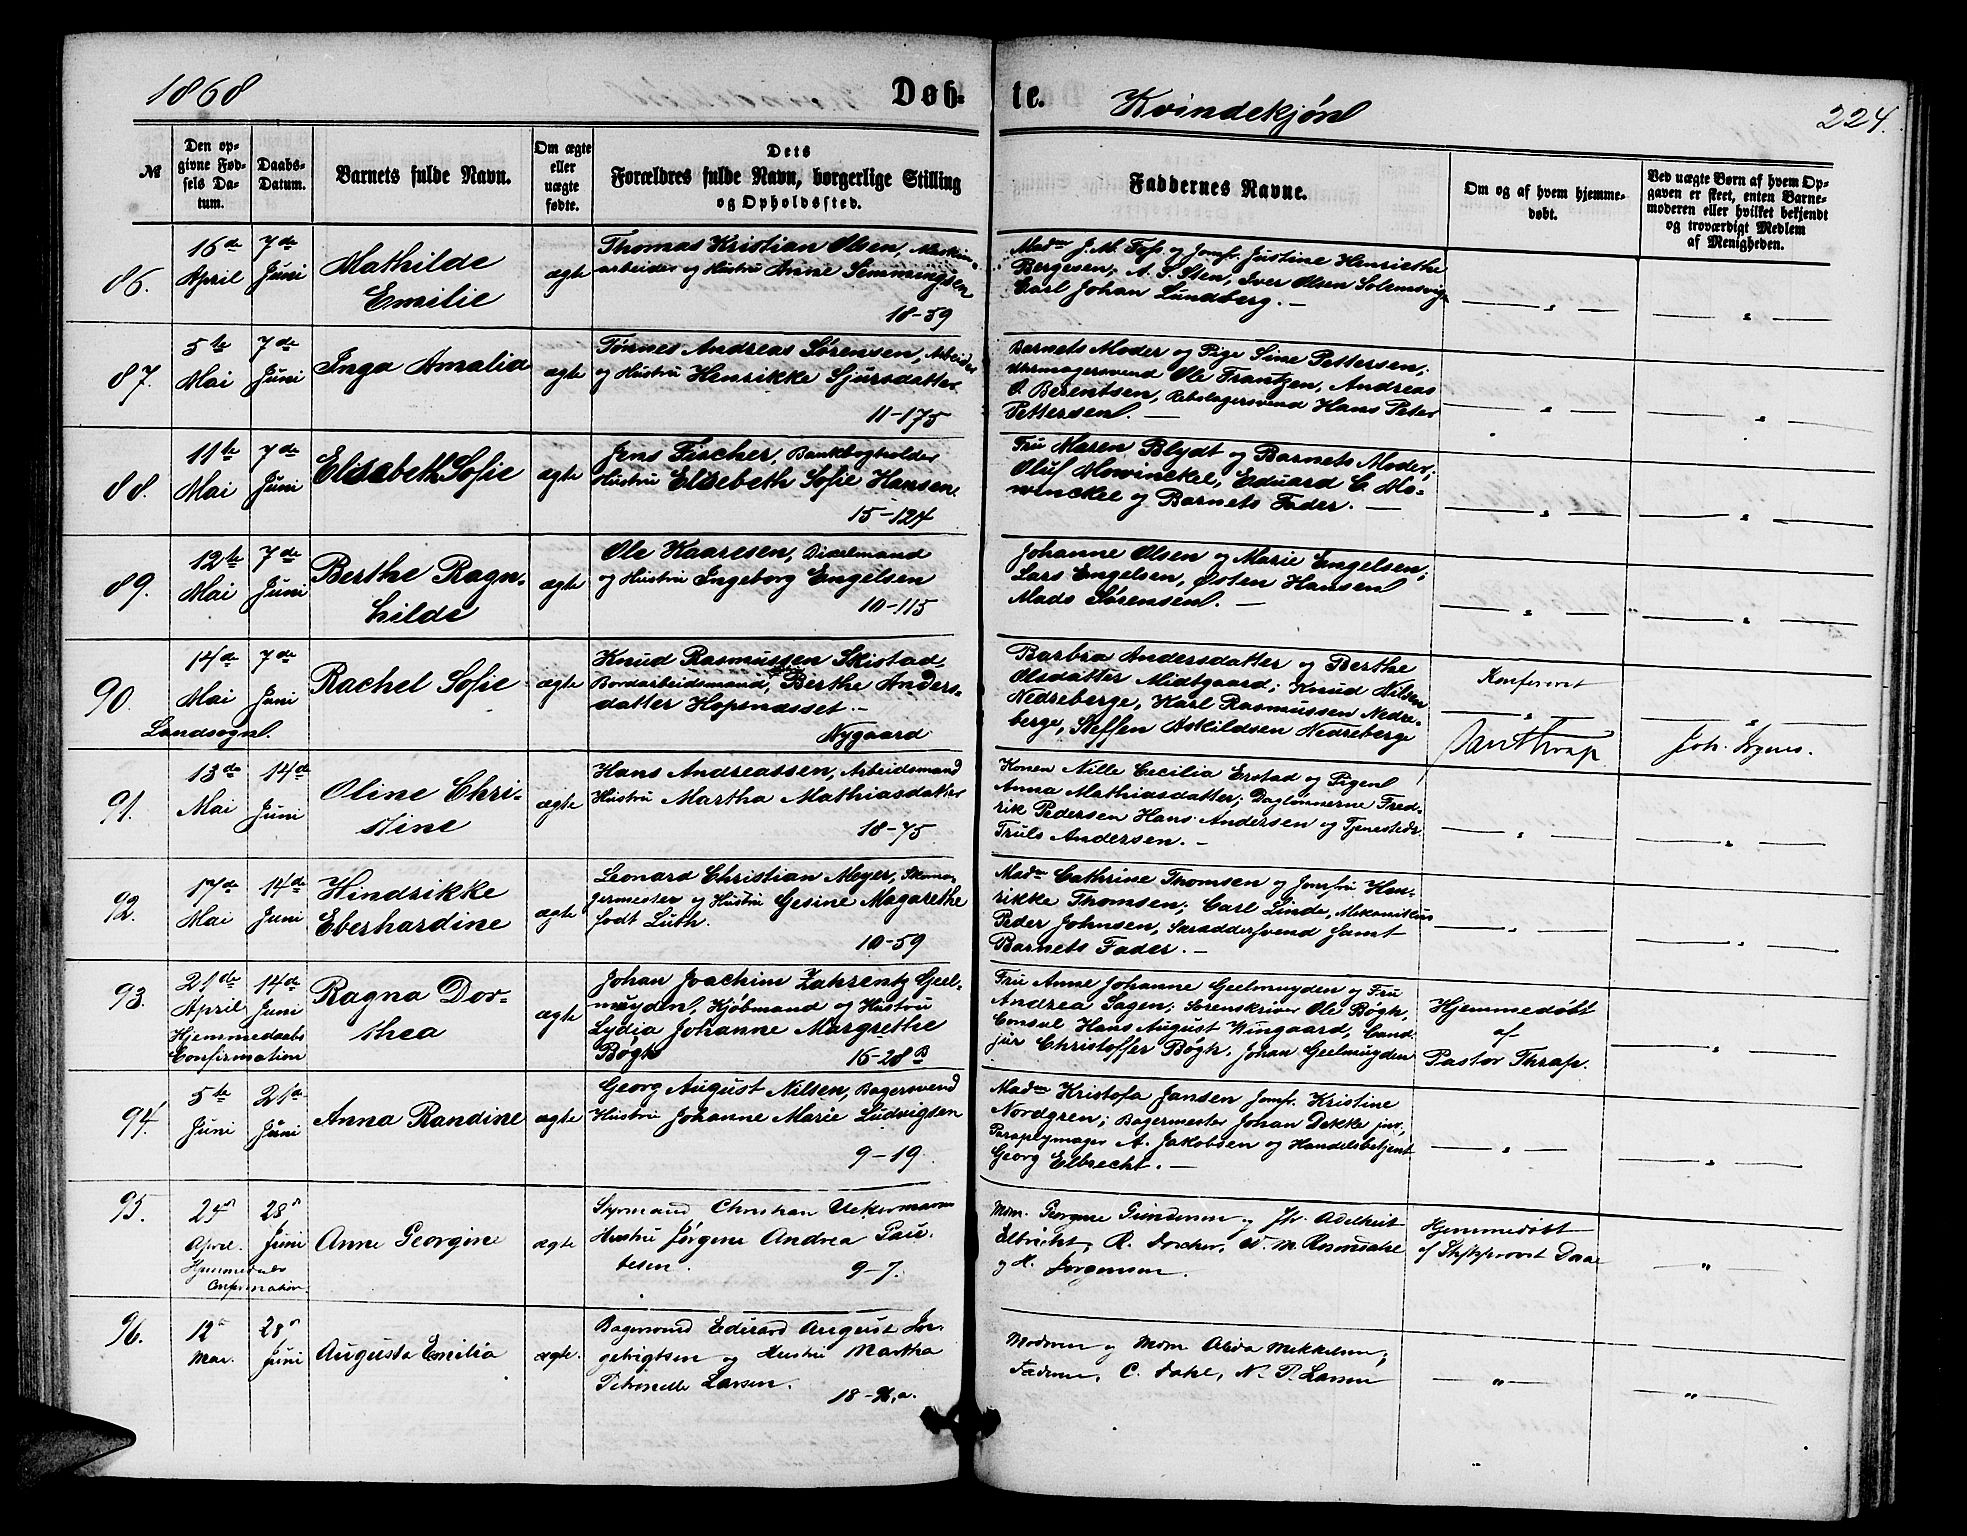 1868
Døb-
te.
Kvindekjøn
224.
№
Den op-
givne Fød-
sels Da-
tum.
Daabs-
Datum.
Barnets fulde Navn.
Om ægte
eller
uægte
fødte.
Dets
Forældres fulde Navn, borgerlige Stilling
og Opholdssted.
Faddernes Navne.
Om og af hvem hjemme-
døbt.
Ved uægte Børn af hvem Op-
gaven er skeet, enten Barne-
moderen eller hvilket bekjendt
og troværdigt Medlem
af Menigheden.
86.
16de
April
7de
Juni
Mathilde
Emilie
ægte
Thomas Kristian Olsen, Maskin-
arbeider og Hustru Anne Simmingsen
18-59
Madm J. M. Foss og Jomfr. Justine Henriethe
Bergesen, A. S. Sten, Iver Olsen Solemsvig
Carl Johan Lundberg. —
87.
5te
Mai
7de
Juni
Inga Amalia
ægte
Tønnes Andreas Sørensen, Arbeider
og Hustru Henrikke Sjursdatter
11-175
Barnets Moder og Pige Sine Pettersen;
Uhrmagersvend Ole Frantzen, Andreas
O. Berentsen, Rebslagersvend Hans Peter
Pettersen. —
88.
11te
Mai
7de
Juni
Elisabeth Sofie
ægte
Jens Fischer, Bankbogholder
Hustru Elisebeth Sofie Hansen.
15-124
Fru Maren Blydt og Barnets Moder;
Oluf Mowinckel, Eduard C. Mo-
winckel og Barnets Fader. —
89.
12te
Mai
7de
Juni
Berthe Ragn-
hilde
ægte
Ole Kaaresen, Dixelmand
og Hustru Ingeborg Engelsen
10-115
Johanne Olsen og Marie Engelsen;
Lars Engelsen, Østen Hansen
Mads Sørensen. —
90.
14de
Mai
7de
Juni
Landsogn.
Rachel Sofie
ægte
Knud Rasmussen Skistad
Bordarbeidsmand, Berthe Anders-
datter Hopsnæsset —
Nygaard
Barbra Andersdatter og Berthe
Olsdatter Midtgaard; Knud Nilsen
Nedreberge, Karl Rasmussen Nedre-
berge, Steffen Askildsen Nedreberge
Konfereret
Thrap
Joh.
91.
13de
Mai
14de
Juni
Oline Chri-
stine
ægte
Hans Andreassen, Arbeidsmand
Hustru Martha Mathiasdatter
18-75
Konen Nille Cecilia Erstad og Pigen
Anna Mathiasdatter; Daglønnerne Fred-
rik Pedersen Hans Andersen og Tjenestedr.
Truls Andersen. —
92.
17de
Mai
14de
Juni
Hindrikke
Eberhardine
ægte
Leonard Christian Meyer, Skoma-
germester og Hustru Gesine Magarethe
født Lüth.
10-59
Madm Cathrine Thomsen og Jomfru Hen-
rikke Thomsen; Carl Linde, Mekanikus
Peder Johnsen, Skræddersvend samt
Barnets Fader. —
93.
21de
April
14de
Juni
Hjemmedaabs
Confirmation
Ragna Dor-
thea
ægte
Johan Joachim Zahrentz Geel-
muyden, Kjøbmand og Hustru
Lydia Johanne Margrethe
Bøgh
15-28 B
Fru Anne Johanne Geelmuyden og Fru
Andrea Sagen; Sorenskriver Ole Bøgh,
Consul Hans August Wingaard, Cand
jur Christoffer Bøgh, Johan Geelmuyden
Hjemmedøbt
af
Pastor Thrap.
94.
5te
Juni
21de
Juni
Anna Randine
ægte
Georg August Nilsen, Bagersvend
Hustru Johanne Marie Ludvigsen
9-19.
Madm Kristofa Jansen Jomf. Kristine
Nordgren; Bagermester Johan Dekke jun,
Paraplymager A. Jakobsen og Handelsbetjent
Georg Elbrecht. —
95.
April.
28
Juni
Hjemmedaabs
Confirmation.
Anne Georgine
ægte
Styrmand Christian Uekermann
Hustru Jørgine Andrea Pau-
besen.
9-7.
Mdm. Georgine Gundersen og Jfr. Adelheit
Elbrecht, R. Forcher, W. M. Rosendahl
og H. Jørgensen.
Hjemmedøbt
af Stiftsprovst Daae
96.
12
Mai.
28
Juni
Augusta Emilia
ægte.
Bagersvend Edvard August In-
gebrigtsen og Hustru Martha
Petronelle Larsen.
18-
Moderen og Mdm Alida Mikkelsen;
Faderen, C. Dahl, N. P. Larsen